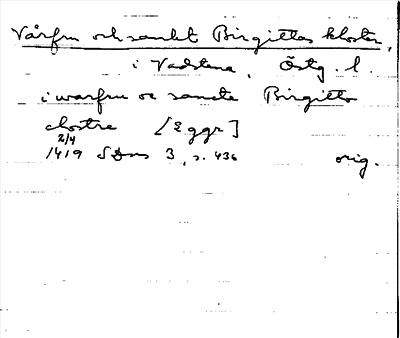 Vårfru och sankt Birgittas kloster,
i Vadstena, Östg. l.
i warfru oc sancte Birgitto
clostre [Eggr]
2/4
1419 SDns 3, s. 436 orig.